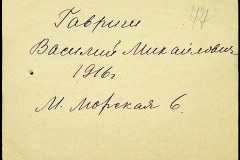 77
Гавриш
Василий Михайлович
1916г
М. Морская 6.